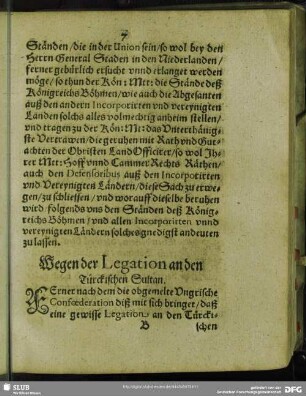 Ständen / die in der Union sein / so wol bey den
Herrn General Staden in den Niederlanden /
ferner gebürlich ersucht vnnd erlanget werden
möge / so thun der Kön: Mtt: die Stände deß
Königreichs Böhmen / wie auch die Abgesanten
auß den andern Incorporirten vnd vereynigten
Landen solchs alles volmechtig anheim stellen /
vnd tragen zu der Kön: Mt: das Vnterthänig-
ste Vertrawen / die geruhen mit Rath vnd Gut-
achten der Obristen Land Officirer / so wol Ih-
rer Mtt: Hoff vnnd Cammer Rechts Räthen /
auch den Defensoribus auß den Incorporirten
vnd Vereynigten Ländern / diese Sach zu erwe-
gen / zu schliessen / vnd worauff dieselbe beruhen
wird folgends vns den Ständen deß König-
reichs Böhmen / vnd allen Incorporirten vnnd
vereynigten Ländern solches gnedigst andeuten
zu lassen.
Wegen der Legation an den
Türckischen Sultan.
FErner nach dem die obgemelte Vngrische
Confœderation diß mit sich bringet / daß
eine gewisse Legation an den Türcki-
B
schen
SLUB
DFG